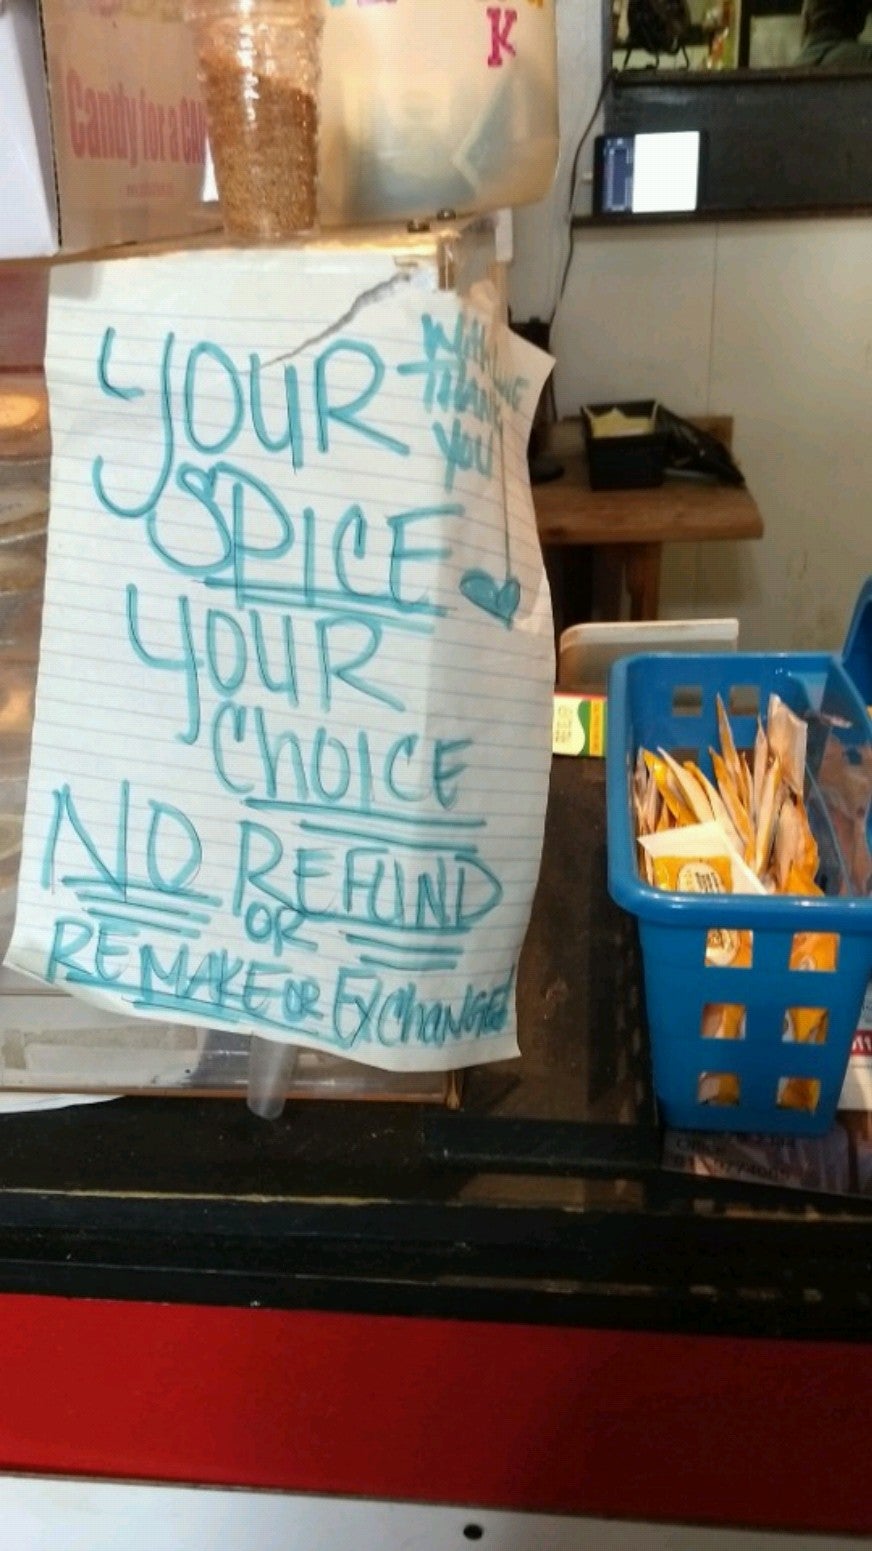 K
Candy for a
YOUR
SPICE
YOUR
ChOICE
NO REFUND
OR
REMAKE OR EXChANGE
THANK
YOU